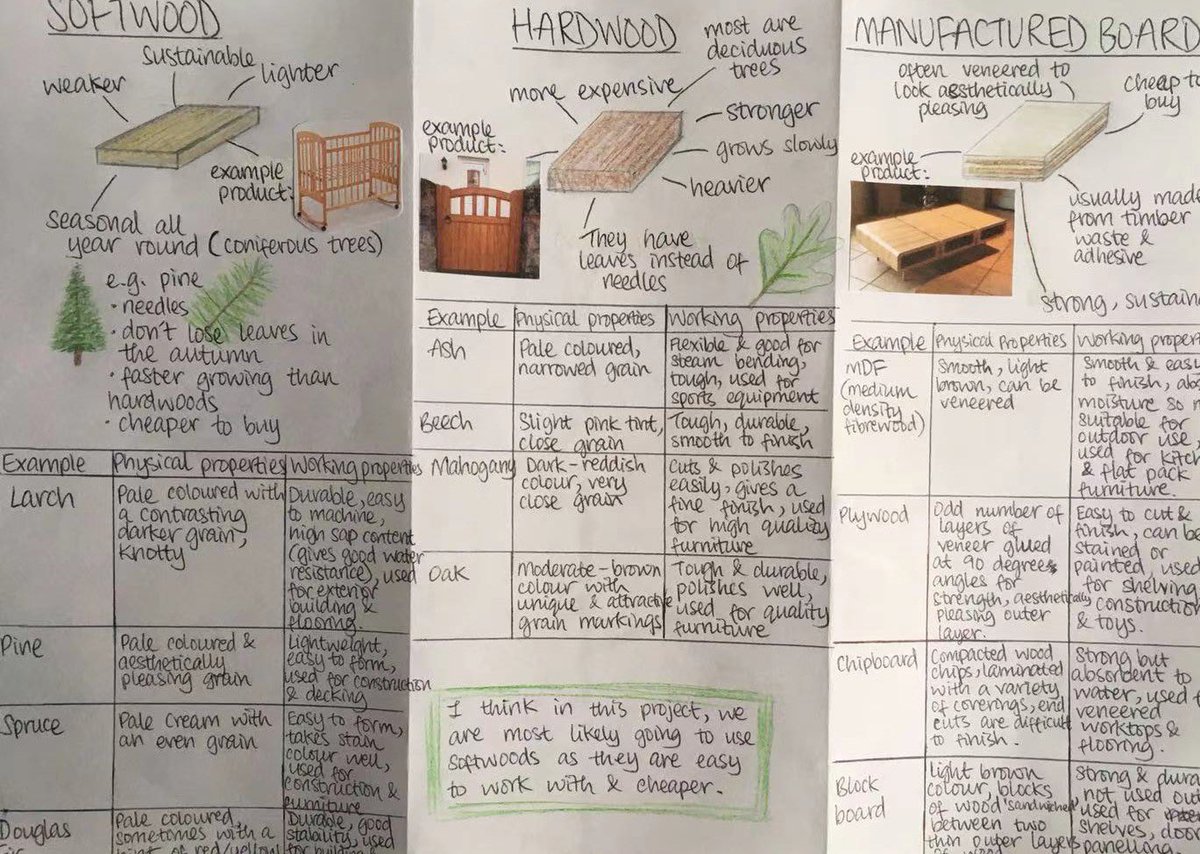 SOFTWOOD
weaker
sustainable
lighter
example
product:
seasonal all
year round (coniferous trees)
e.g. pine
• needles
• don't lose leaves in
the autumn
• faster growing than
hardwoods
• cheaper to buy
Example Physical properties Working properties
Larch
Pale coloured with
a contrasting
darker grain,
knotty
Durable, easy
to machine,
high sap content
(gives good water
resistance), used
for exterior
building &
flooring.
Pine
Pale coloured &
aesthetically
pleasing grain
Lightweight,
easy to form,
used for construction
& decking
Spruce
Pale cream with
an even grain
Easy to form,
takes stain
colour well,
used for
construction &
furniture
Douglas
Pale coloured,
sometimes with a
of red/yellow
Durable, good
stability, used
for building
HARDWOOD
most are
deciduous
trees
more expensive
stronger
example
product:
grows slowly
heavier
They have
leaves instead of
needles
Example Physical properties Working properties
Ash
Pale coloured,
narrowed grain
Flexible & good for
steam bending,
tough, used for
sports equipment
Beech
Slight pink tint,
close grain
Tough, durable,
smooth to finish
Mahogany
Dark-reddish
colour, very
close grain
Cuts & polishes
easily, gives a
fine finish, used
for high quality
furniture
Oak
Moderate-brown
colour with
unique & attractive
grain markings
Tough & durable,
polishes well,
used for quality
furniture
I think in this project, we
are most likely going to use
softwoods as they are easy
to work with & cheaper.
MANUFACTURED BOARD
often veneered to
look aesthetically
pleasing
cheap to
buy
example
product:
usually made
from timber
waste &
adhesive
strong, sustain
Example Physical Properties Working propert
MDF
(medium
density
fibrewood)
Smooth, light
brown, can be
veneered
Smooth & easy
to finish, abs
moisture so n
suitable for
outdoor use,
used for kitch
& flat pack
furniture.
Plywood
Odd number of
layers of
veneer glued
at 90 degrees
angles for
strength, aesthetically
pleasing outer
layer.
Easy to cut &
finish, can be
stained or
painted, used
for shelving
construction
& toys.
Chipboard
Compacted wood
chips, laminated
with a variety
of coverings, end
cuts are difficult
to finish.
Strong but
absorbent to
water, used
veneered
worktops &
flooring.
Block
board
Light brown
colour, blocks
of wood 'sandwiched'
between two
thin outer layers
Strong & dura
not used ou
used for
shelves, doo
panelling